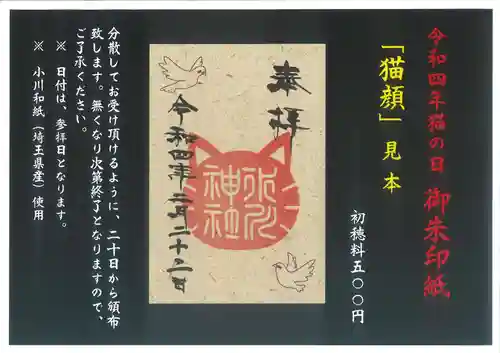 令和四年猫の日 御朱印紙
「猫顔」見本
初穂料五〇〇円
奉拝
氷川
神社
令和四年二月二十二日
分散してお受け頂けるように、二十日から頒布
致します。無くなり次第終了となりますので、
ご了承ください。
※ 日付は、参拝日となります。
※ 小川和紙（埼玉県産）使用